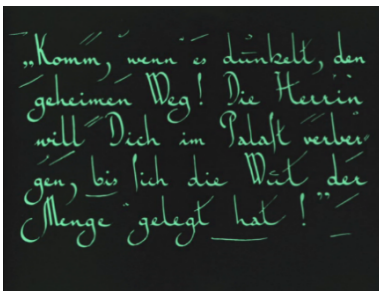 „Komm, wenn es dunkelt, den
geheimen Weg! Die Herrin
will Dich im Palast verber-
gen, bis sich die Wut der
Menge gelegt hat!”